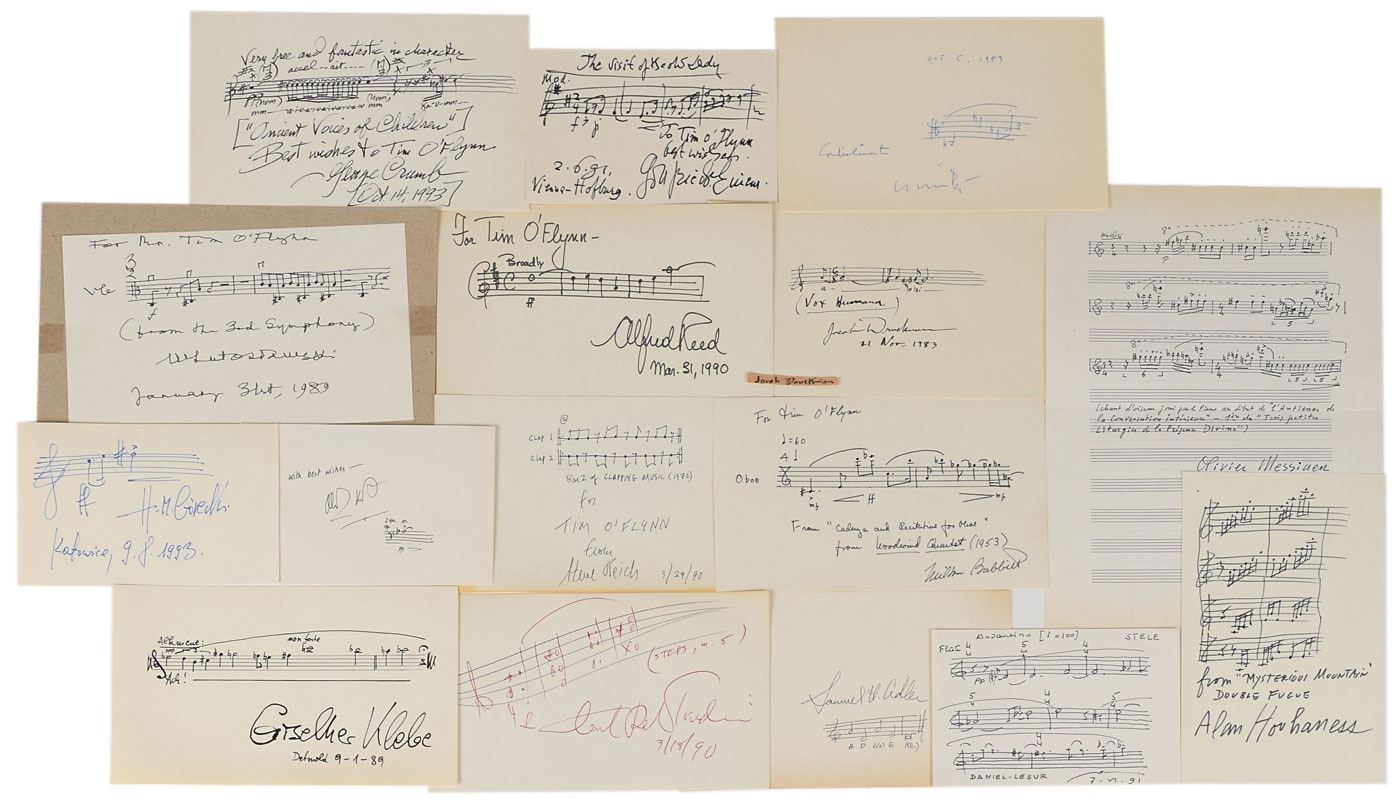 Very free and fantastic in character
accel
["Ancient Voices of Children"]
Best wishes to Tim O'Flynn
George Crumb
[Oct 14, 1993]
The visit of the Old Lady
Mod.
f p
To Tim O'Flynn
best wishes.
2.6.91,
Vienna-Hofburg.
Oct 5, 1983
For Mr. Tim O'Flynn
Vle
f
(from the 3rd Symphony)
WLutosławski
January 31st, 1989
For Tim O'Flynn-
Broadly
ff
Alfred Reed
Mar. 31, 1990
(Vox Humana)
Jacob Druckman
21 Nov. 1983
Jacob Druckman
8ª
p
8ª
5
8ª
6 7 5
(chant d'oiseau joué par le Piano au début de "l'Antienne de
la Conversation intérieure" - 1ère de "Trois petites
Liturgies de la Présence Divine")
Olivier Messiaen
ff
H. M. Górecki
Katowice, 9.8.1993.
with best wishes-
Clap 1
Clap 2
Bar 2 of CLAPPING MUSIC (1972)
for
TIM O'FLYNN
from
Steve Reich 3/29/90
For Tim O'Flynn
♩=60
Oboe
mf ff mf
From "Cadenza and Recitative for Oboe"
from Woodwind Quartet (1953)
Milton Babbitt
non forte
Ach!
Giselher Klebe
Detmold 9-1-89
(STEPS, m. 5)
Samuel H. Adler
A D L(a) E
Andantino [♩=100] STELE
Flute
pp
DANIEL-LESUR
from "MYSTERIOUS MOUNTAIN"
DOUBLE FUGUE
Alan Hovhaness